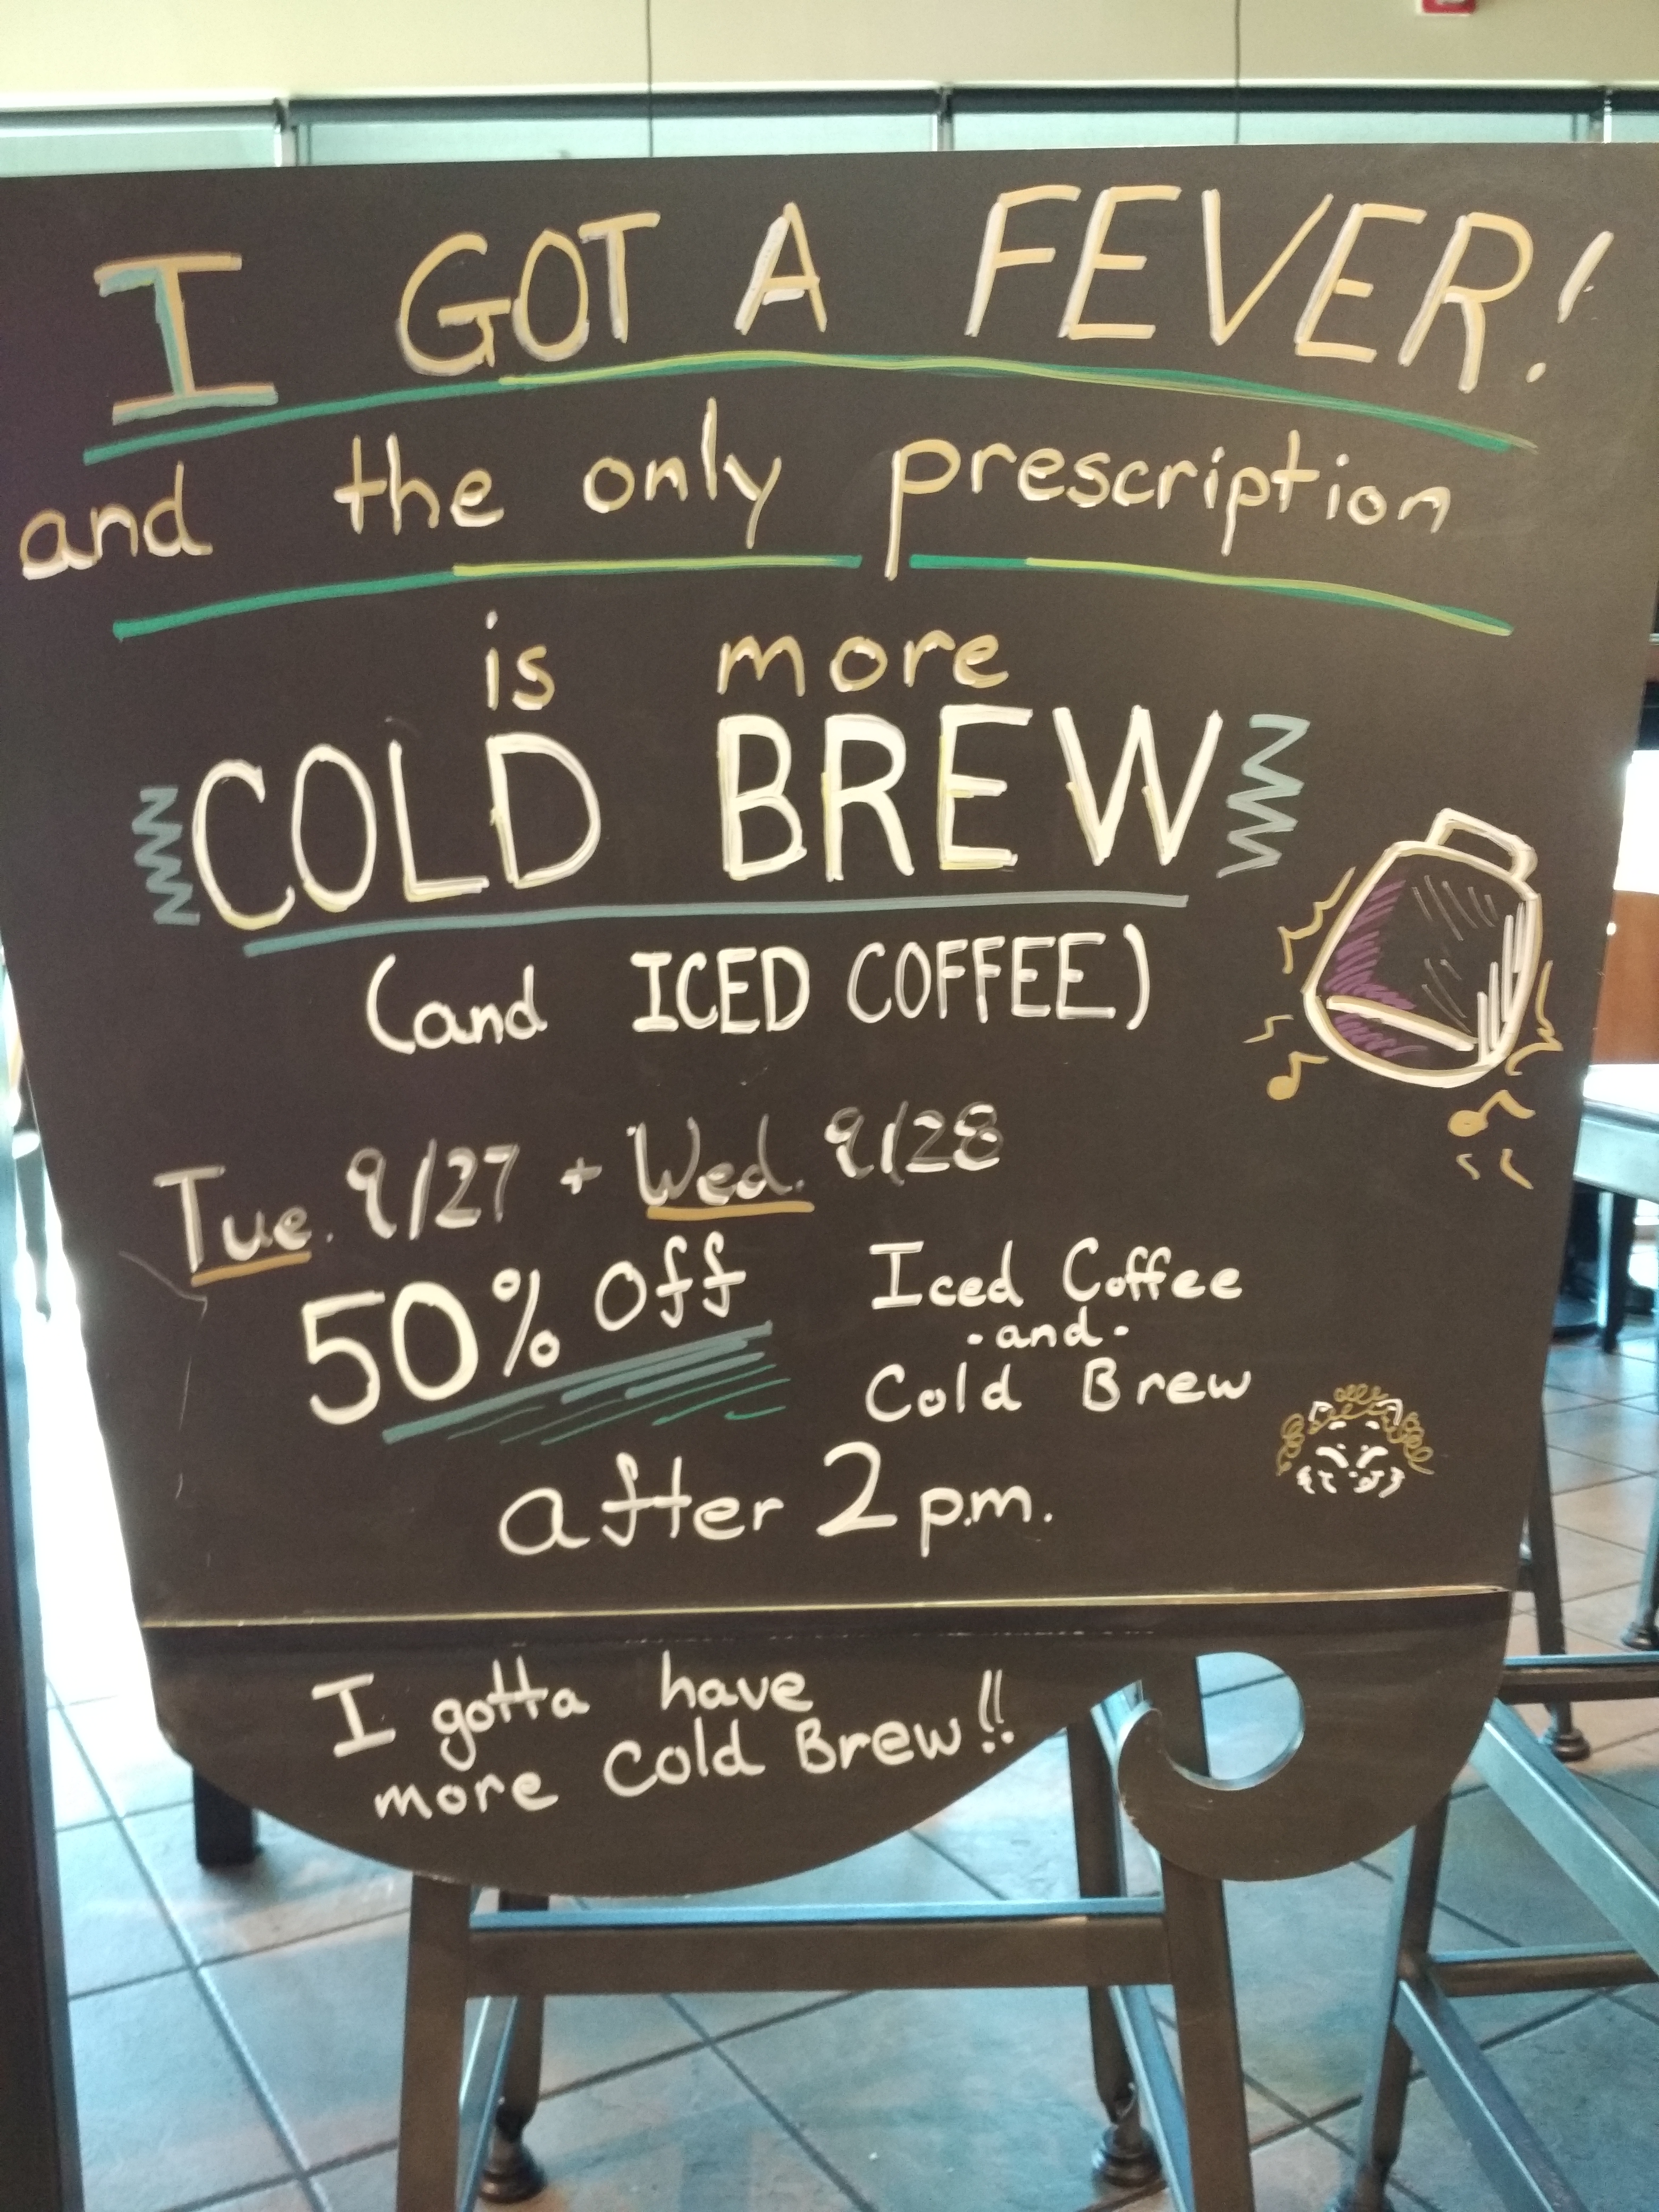 I GOT A FEVER!
and the only prescription
is more
COLD BREW
(and ICED COFFEE)
Tue. 9/27 + Wed. 9/28
50% off
Iced Coffee
-and-
Cold Brew
after 2 p.m.
I gotta have
more Cold Brew!!